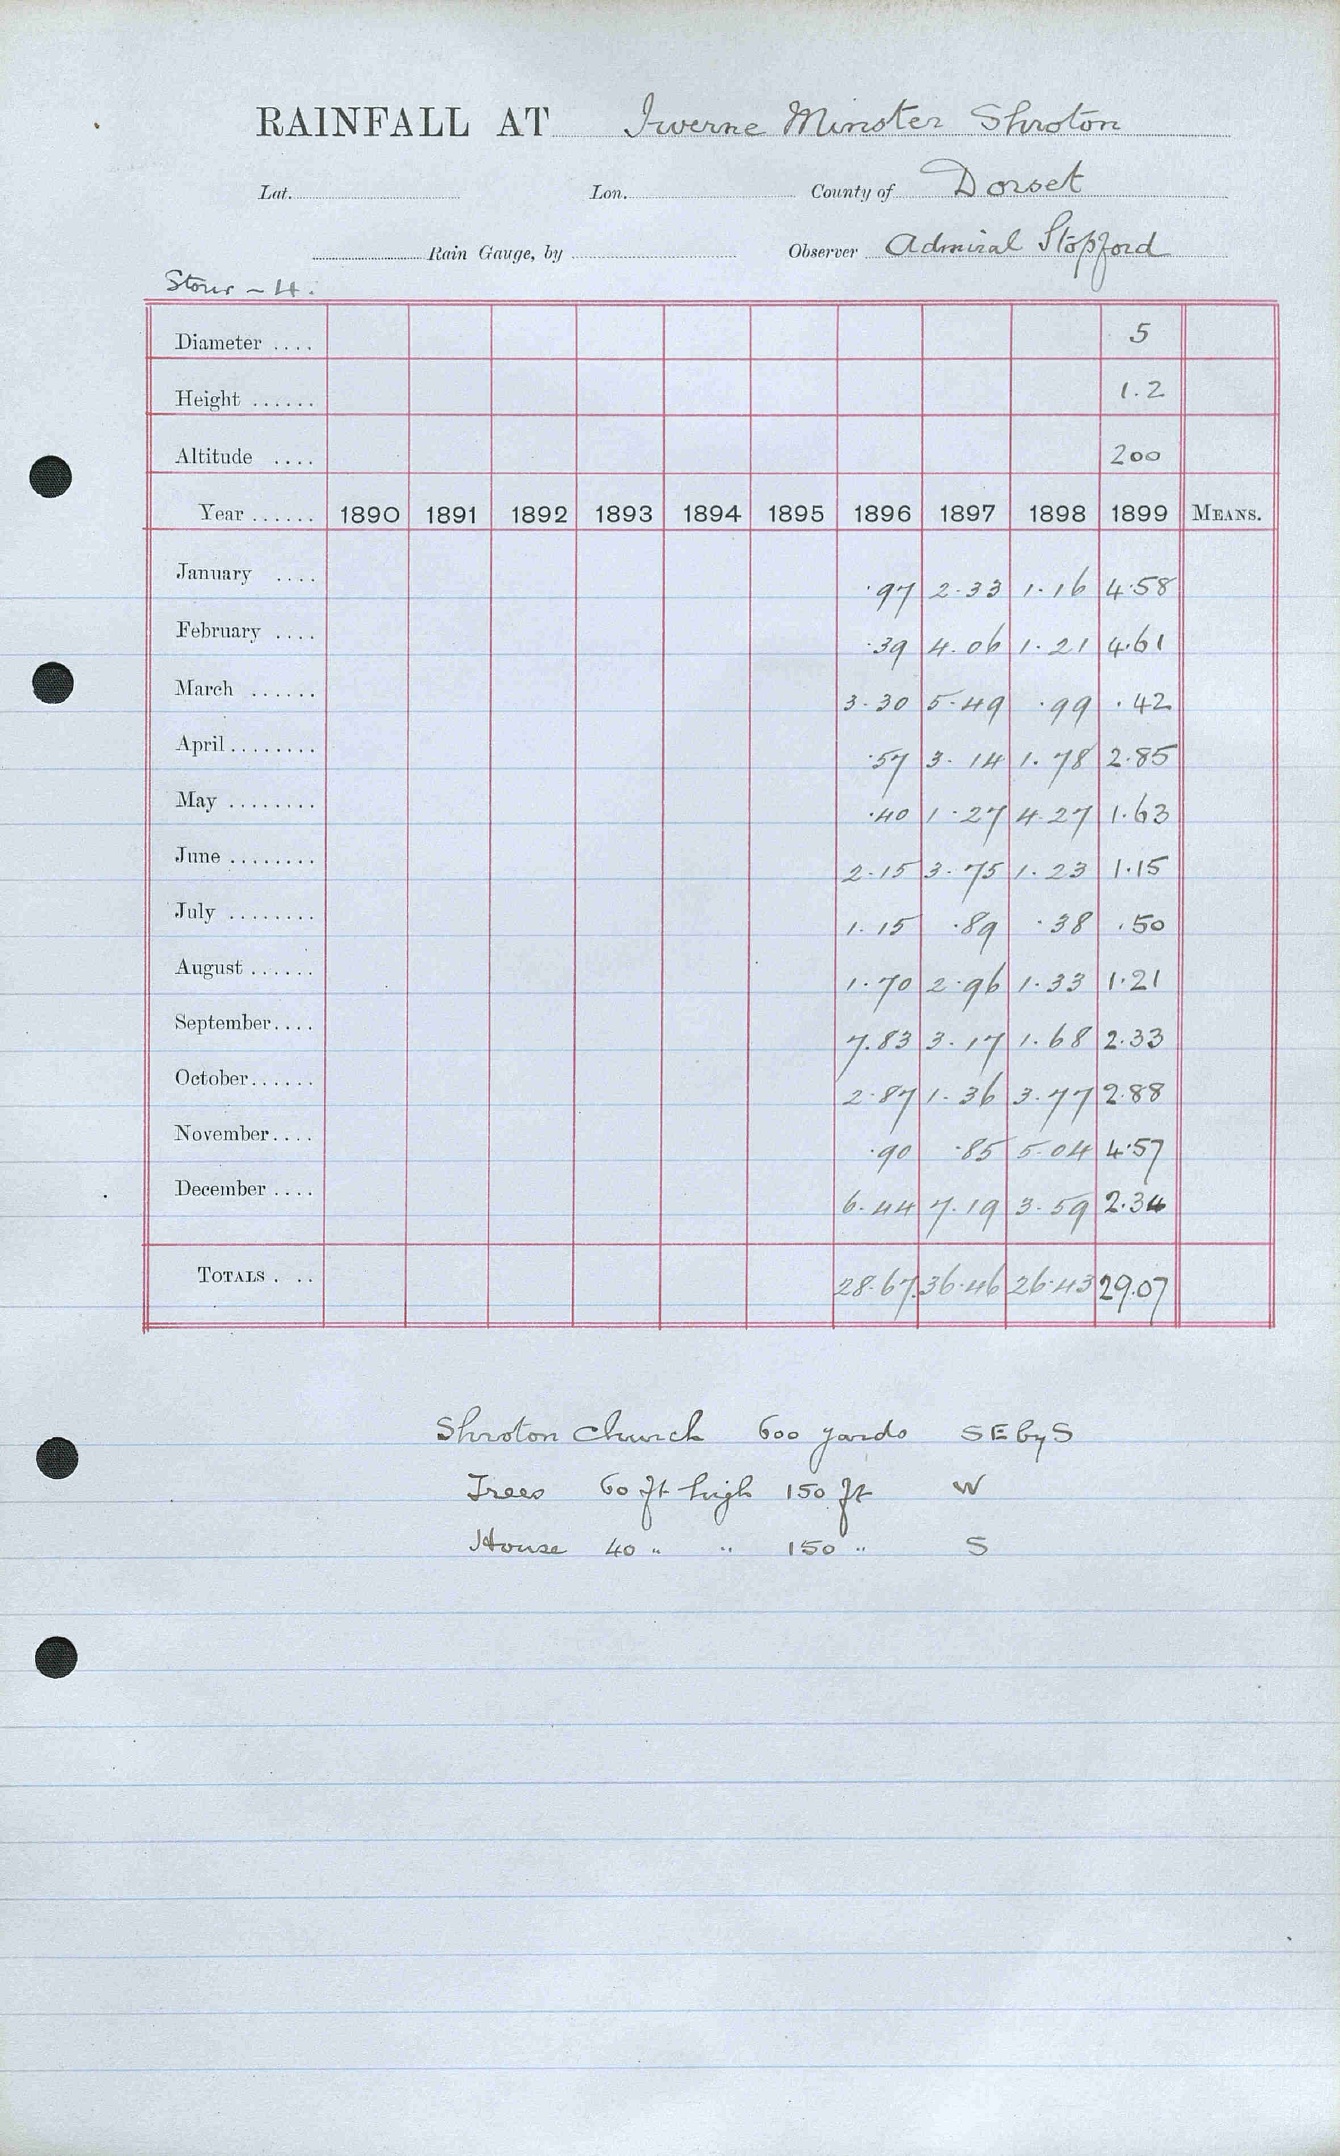 RAINFALL AT Iwerne Minster Shroton
Lat. Lon. County of Dorset
Rain Gauge, by Observer Admiral Stopford
Stour - 4.
Diameter .... 5
Height ...... 1.2
Altitude .... 200
Year ...... 1890 1891 1892 1893 1894 1895 1896 1897 1898 1899 MEANS.
January .... .97 2.33 1.16 4.58
February .... .39 4.06 1.21 4.61
March ...... 3.30 5.49 .99 .42
April ........ .57 3.14 1.78 2.85
May ........ .40 1.27 4.27 1.63
June ........ 2.15 3.75 1.23 1.15
July ........ 1.15 .89 .38 .50
August ...... 1.70 2.96 1.33 1.21
September .... 7.83 3.17 1.68 2.33
October ...... 2.87 1.36 3.77 2.88
November .... .90 .85 5.04 4.57
December .... 6.44 7.19 3.59 2.34
TOTALS . .. 28.67 36.46 26.43 29.07
Shroton Church 600 yards SE by S
Trees 60 ft high 150 ft W
House 40 " " 150 " S